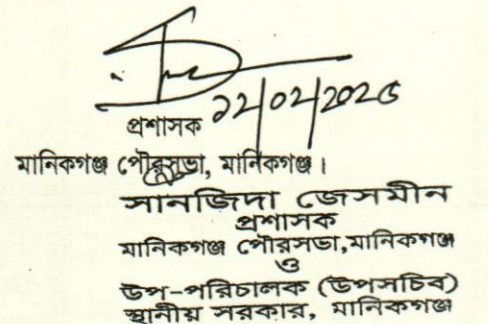 ১২/০২/২০২৫
প্রশাসক
মানিকগঞ্জ পৌরসভা, মানিকগঞ্জ।
সানজিদা জেসমীন
প্রশাসক
মানিকগঞ্জ পৌরসভা,মানিকগঞ্জ
ও
উপ-পরিচালক (উপসচিব)
স্থানীয় সরকার, মানিকগঞ্জ